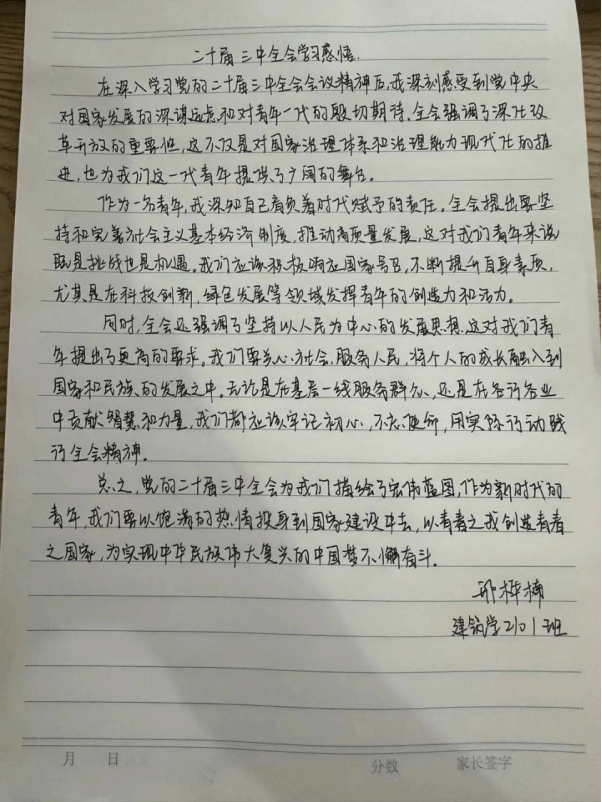 二十届三中全会学习感悟.
在深入学习党的二十届三中全会会议精神后,我深刻感受到党中央
对国家发展的深谋远虑和对青年一代的殷切期待.全会强调了深化改
革开放的重要性,这不仅是对国家治理体系和治理能力现代化的推
进,也为我们这一代青年提供了广阔的舞台。
作为一名青年,我深知自己肩负着时代赋予的责任。全会提出要坚
持和完善社会主义基本经济制度,推动高质量发展,这对我们青年来说
既是挑战也是机遇。我们应该积极响应国家号召,不断提升自身素质,
尤其是在科技创新,绿色发展等领域发挥青年的创造力和活力。
同时,全会还强调了坚持以人民为中心的发展思想,这对我们青
年提出了更高的要求。我们要关心社会,服务人民,将个人的成长融入到
国家和民族的发展之中。无论是在基层一线服务群众,还是在各行各业
中贡献智慧和力量,我们都应该牢记初心,不忘使命,用实际行动践
行全会精神。
总之,党的二十届三中全会为我们描绘了宏伟蓝图,作为新时代的
青年,我们要以饱满的热情投身到国家建设中去,以青春之我创造青春
之国家,为实现中华民族伟大复兴的中国梦不懈奋斗.
桦楠
建筑学2101班
月 日 分数 家长签字